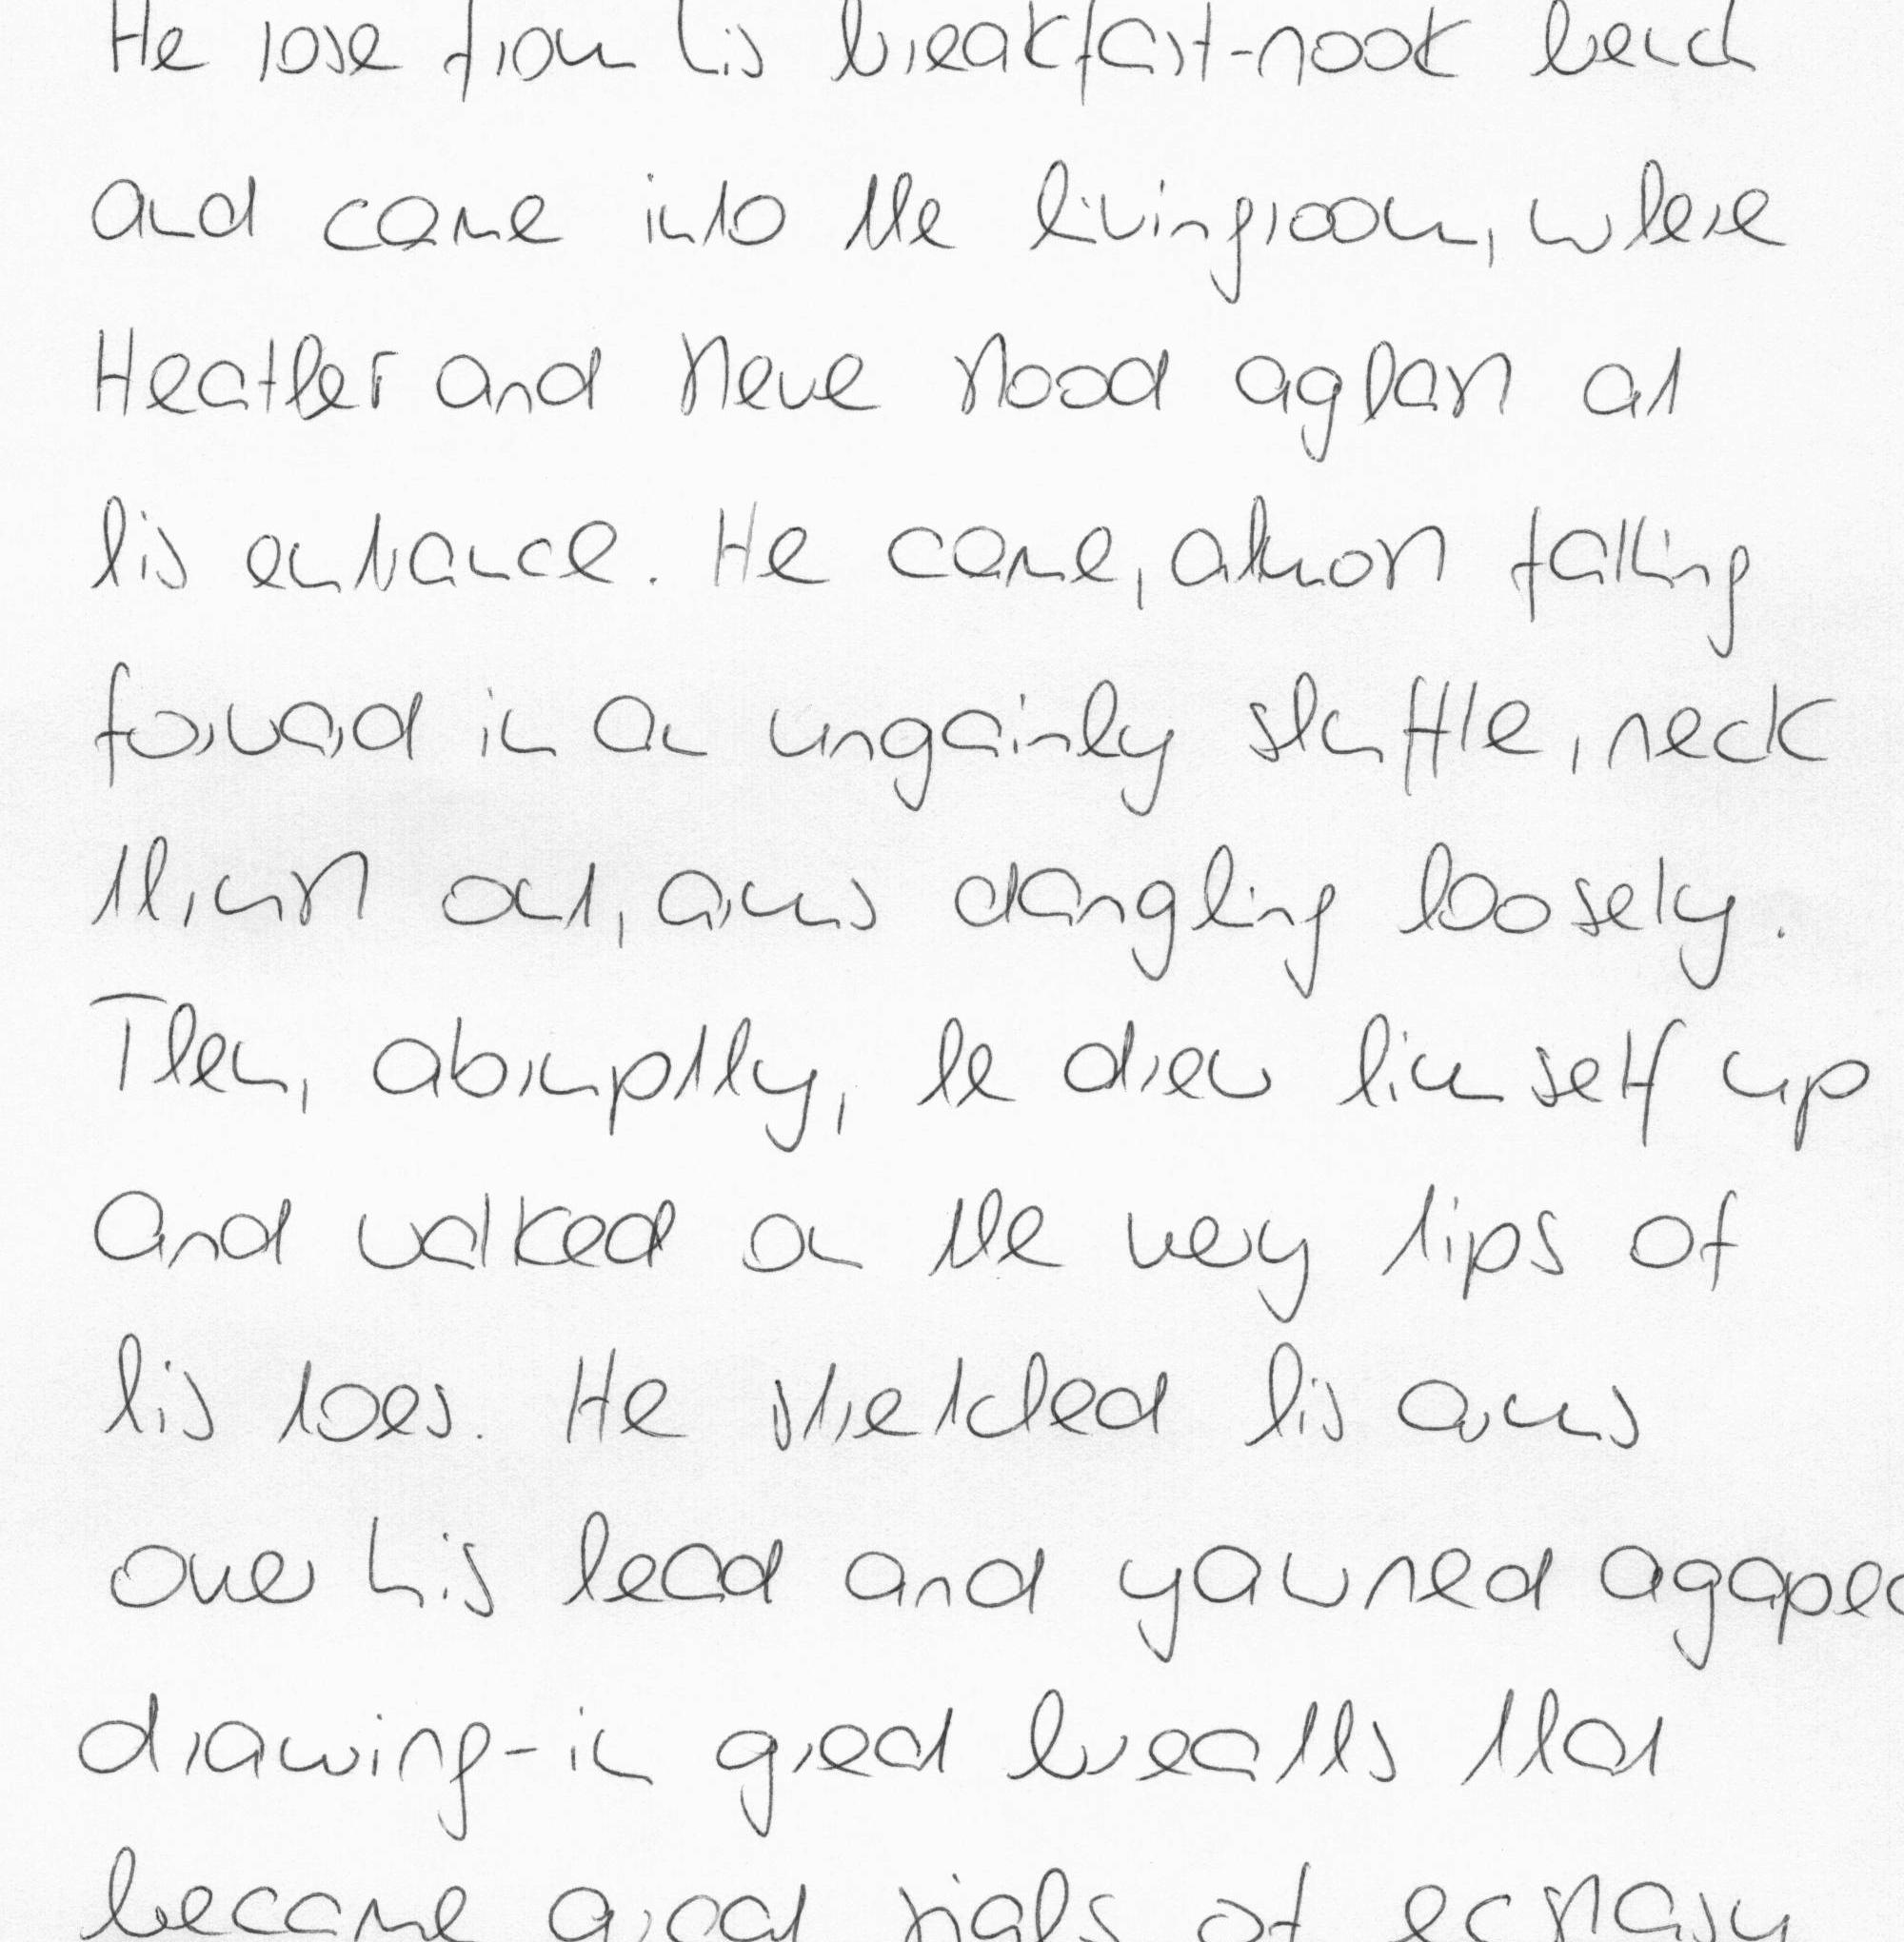 He rose from his breakfast-nook bench
and came into the livingroom, where
Heather and Steve stood aghast at
his entrance. He came, almost falling
forward in an ungainly shuffle, neck
thrust out, arms dangling loosely.
Then, abruptly, he drew himself up
and walked on the very tips of
his toes. He stretched his arms
over his head and yawned agaped
drawing-in great breaths that
became great sighs of ecstasy